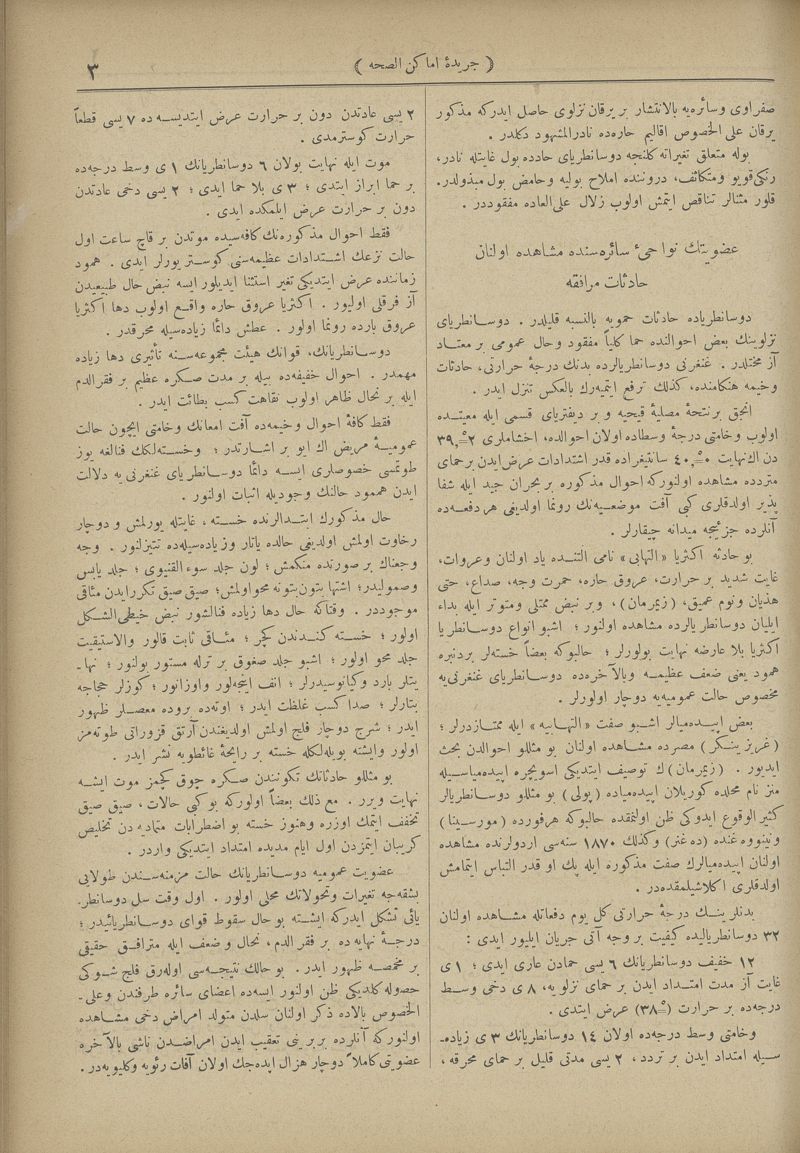 ﴿ جريدهٔ اماكن الصحه ﴾
٣
صفراوى وسائره‌يه بالانتشار بر يرقان نزلوى حاصل ايدركه مذكور
يرقان على الخصوص اقاليم حاره‌ده نادر المشهود دكلدر .
بوله متعلق تغيراته كلنجه دوسانطرياى حادده بول غايتله نادر،
رنكى قويو ومتكاثف، دروننده املاح بوليه وحامض بول مبذولدر.
قلور مثاللر تناقص ايتمش اولوب زلال على العاده مفقوددر .
عضويتك نواحئ سائره‌سنده مشاهده اولنان
حادثات مرافقه
دوسانطرياده حادثات حمويه بالنسبه قليلدر . دوسانطرياى
نزلوينك بعض احوالنده حما كلياً مفقود وحال عمومى بر معتاد
آز مختلدر . غنغرنى دوسانطريالرده بدنك درجهٔ حرارتى، حادثات
وخيمه هنكامنده، كذلك ترفع ايتميه‌رك بالعكس تنزل ايدر .
انجق بر نتحهٔ مصليهٔ قيحيه و بر ديفترياى قسمى ايله معيتده
اولوب وخامتى درجهٔ وسطاده اولان احوالده، اخشاملرى ٣٩٫٢
دن اك نهايت ٤٠٫٥ سانتيغراده قدر اشتدادات عرض ايدن بر حماى
متردده مشاهده اولنوركه احوال مذكوره بر بحران جيد ايله شفا
پذير اولدقلرى كبى آفت موضعيه‌نك رونما اولديغى هر دفعه‌ده
آنلرده جزئيجه ميدانه چيقارلر .
بو حادثه اكثريا «التهابى» نامى التنده ياد اولنان وعروات،
غايت شديد بر حرارت، عروق حاره، حمرت وجه، صداع، حتى
هذيان ونوم عميق، (زيمرمان)، وبر نبض ممتلى ومتوتر ايله بداء
ايليان دوسانطريالرده مشاهده اولنور ؛ اشبو انواع دوسانطريا
اكثريا بلا عارضه نهايت بولورلر ؛ حالبوكه بعضاً خسته‌لر بردنبره
همود يعنى ضعف عظيمه وبالآخره‌ده دوسانطرياى غنغرنى‌يه
مخصوص حالت عموميه‌يه دوچار اولورلر .
بعض اپيده‌ميالر اشبو صفت «التهابيه» ايله ممتازدرلر ؛
(غريزينكر) مصرده مشاهده اولنان بو مثللو احوالدن بحث
ايديور . (زيمرمان)ك توصيف ايتديكى اسويچره اپيده‌مياسيله
متز نام محلده كوريلان اپيده‌مياده (پولى) بو مثللو دوسانطريالر
كثير الوقوع ايدوكى ظن اولنمقده حالبوكه هرفورده (مورسينا)
ونينووه غنده (ده‌غنر) وكذلك ١٨٧٠ سنه‌سى اردولرنده مشاهده
اولنان اپيده‌ميالرك صفت مذكوره ايله پك او قدر التباس ايتمامش
اولدقلرى اكلاشيلمقده‌در .
بدنلرينك درجهٔ حرارتى كل يوم دفعاتله مشاهده اولنان
٣٢ دوسانطرياليده كيفيت بر وجه آتى جريان ايليور ايدى :
١٢ خفيف دوسانطريانك ٦ يسى حمادن عارى ايدى ؛ ١ ى
غايت آز مدت امتداد ايدن بر حماى نزلويه، ٨ ى دخى وسط
درجه‌ده بر حرارت (٣٨) عرض ايتدى .
وخامتى وسط درجه‌ده اولان ١٤ دوسانطريانك ٣ ى زياده‌-
سيله امتداد ايدن بر تردد، ٢ يسى مدتى قليل بر حماى محرقه ،
٢ يسى عادتدن دون بر حرارت عرض ايتديسه‌ده ٧ يسى قطعاً
حرارت كوسترمدى .
موت ايله نهايت بولان ٦ دوسانطريانك ١ ى وسط درجه‌ده
بر حما ابراز ايتدى ؛ ٣ ى بلا حما ايدى ؛ ٢ يسى دخى عادتدن
دون بر حرارت عرض ايلمكده ايدى .
فقط احوال مذكوره‌نك كافه‌سيده موتدن بر قاچ ساعت اول
حالت نزعك اشتدادات عظيمه‌سنى كوستريورلر ايدى . همود
زماننده عرض ايتديكى تغير استثنا ايديلور ايسه نبض حال طبيعيدن
آز فرقلى اوليور . اكثريا عروق حاره واقع اولوب دها اكثريا
عروق بارده رونما اولور . عطش دائماً زياده‌سيله محرقدر .
دوسانطريانك، قوانك هيئت مجموعه‌سنه تأثيرى دها زياده
مهمدر . احوال خفيفه‌ده بيله بر مدت صكره عظيم بر فقر الدم
ايله بر نحال ظاهر اولوب نقاهت كسب بطائت ايدر .
فقط كافهٔ احوال وخيمه‌ده آفت امعانك وخامتى ايچون حالت
عموميهٔ مريض اك ايو بر اشارتدر ؛ وخسته‌لكك فنالغه يوز
طوتمسى خصوصلرى ايسه دائماً دوسانطرياى غنغرنى يه دلالت
ايدن همود حالنك وجوديله اثبات اولنور .
حال مذكورك ابتدالرنده خسته، غايتله يورلمش و دوچار
رخاوت اولمش اولديغى حالده ياتار وزياده‌سيله‌ده تتيزلنور . وجه
وجعناك بر صورتده منكمش ؛ لون جلد سوء القنيوى ؛ جلد يابس
وصموليدر؛ اشتها بتون بتونه محو اولمش؛ صيق صيق تكرر ايدن مثاقى
موجوددر . وقتاكه حال دها زياده فنالشور نبض خيطى الشكل
اولور ؛ خسته كندندن كچر ؛ مثاقى ثابت قالور والاستيقيت
جلد محو اولور ؛ اشبو جلد صغوق بر ترله مستور بولنور ؛ نها-
يتلر بارد وكيانوسيدرلر ؛ انف اينجه‌لور واوزانور ؛ كوزلر حجاجه
بتارلر ؛ صدا كسب غلظت ايدر ؛ اوته‌ده بروده معصلر ظهور
ايدر ؛ شرج دوچار فلج اولمش اولديغندن آرتق قزوراتى طوته‌مز
اولور وايشته بويله‌لكله خسته بر رايحهٔ غائطويه نشر ايدر .
بو مثللو حادثاتك تكونندن صكره چوق كچمز موت ايشه
نهايت ويرر . مع ذلك بعضاً اولوركه بو كبى حالات، صيق صيق
تخفف ايتمك اوزره وهنوز خسته بو اضطرابات متماديه دن تخليص
كريبان ايتمزدن اول ايام مديده امتداد ايتديكى واردر .
عضويت عموميه دوسانطريانك حالت مزمنه‌سندن طولايى
بشقه‌جه تغيرات وتحولاتك محلى اولور . اول وقت سل دوسانطر-
يائى تشكل ايدركه ايشته بو حال سقوط قواى دوسانطريائيدر ؛
درجهٔ نهايه ده بر فقر الدم، نحال و ضعف ايله مترافق حقيقى
بر مخمصه ظهور ايدر . بو حالك نتيجه‌سى اوله‌رق فلج شوكى
حصوله كلديكى ظن اولنور ايسه‌ده اعضاى سائره طرفندن وعلى-
الخصوص بالاده ذكر اولنان سلدن متولد امراض دخى مشاهده
اولنوركه آنلرده بربرينى تعقيب ايدن امراضدن ناشى بالآخره
عضويتى كاملاً دوچار هزال ايده‌جك اولان آفات رئويه وكليويه‌در.